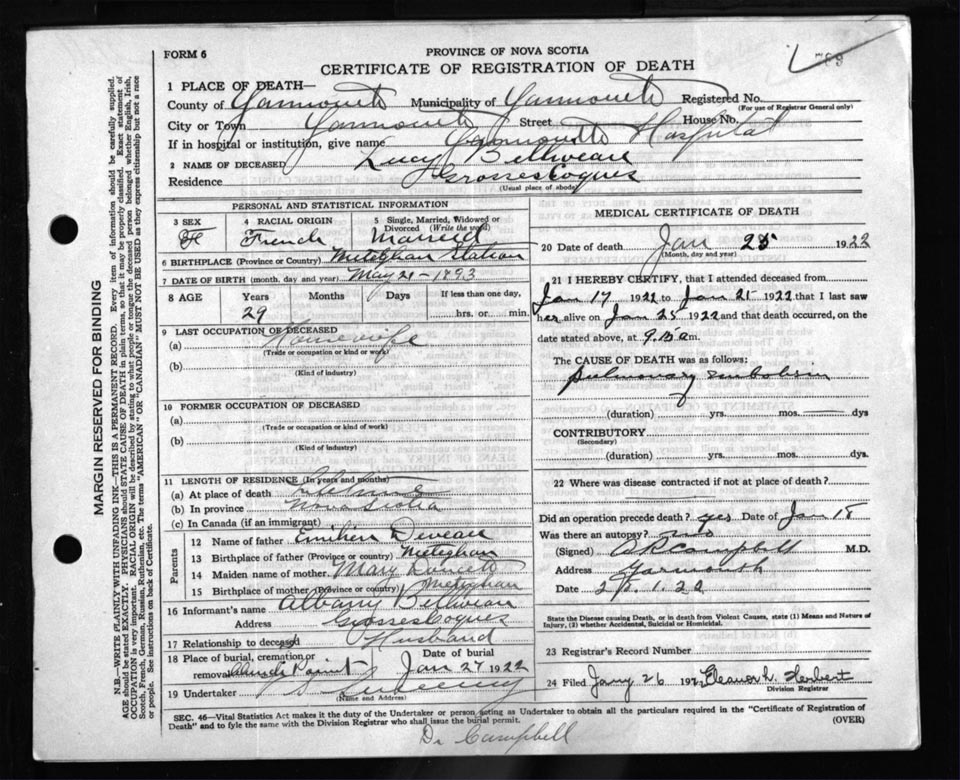 FORM 6
PROVINCE OF NOVA SCOTIA
CERTIFICATE OF REGISTRATION OF DEATH
789
MARGIN RESERVED FOR BINDING
N.B.—WRITE PLAINLY WITH UNFADING INK—THIS IS A PERMANENT RECORD. Every item of information should be carefully supplied.
AGE should be stated EXACTLY. PHYSICIANS should STATE CAUSE OF DEATH in plain terms, so that it may be properly classified. Exact statement of
OCCUPATION is very important. RACIAL ORIGIN will be described by stating to what people or tongue the deceased person belonged whether English, Irish,
Scotch, French, German, Russian, Ruthenian, etc. The terms "AMERICAN" OR "CANADIAN" MUST NOT BE USED as they express citizenship but not a race
or people. See instructions on back of Certificate.
1 PLACE OF DEATH—
County of Yarmouth Municipality of Yarmouth Registered No.
(For use of Registrar General only)
City or Town Yarmouth Street House No.
If in hospital or institution, give name Yarmouth Hospital
2 NAME OF DECEASED Lucy Belliveau
Residence Grosses Coques
(Usual place of abode)
PERSONAL AND STATISTICAL INFORMATION
3 SEX F
4 RACIAL ORIGIN French
5 Single, Married, Widowed or Divorced (Write the word) Married
6 BIRTHPLACE (Province or Country) Meteghan Station
7 DATE OF BIRTH (month, day and year) May 21-1893
8 AGE Years Months Days If less than one day,
29 hrs. or min.
9 LAST OCCUPATION OF DECEASED
(a) Housewife
(Trade or occupation or kind or work)
(b)
(Kind of industry)
10 FORMER OCCUPATION OF DECEASED
(a)
(Trade or occupation or kind of work)
(b)
(Kind of industry)
11 LENGTH OF RESIDENCE (In years and months)
(a) At place of death
(b) In province Nova Scotia
(c) In Canada (if an immigrant)
Parents
12 Name of father Emilien Deveau
13 Birthplace of father (Province or country) Meteghan
14 Maiden name of mother Mary
15 Birthplace of mother (Province or country) Meteghan
16 Informant's name Albany Belliveau
Address Grosses Coques
17 Relationship to deceased Husband
18 Place of burial, cremation or removal Church Point
Date of burial Jan 27 1922
19 Undertaker Sweeney
(Name and Address)
MEDICAL CERTIFICATE OF DEATH
20 Date of death Jan 25 1922
(Month, day and year)
21 I HEREBY CERTIFY, that I attended deceased from
Jan 17 1922 to Jan 21 1922 that I last saw
her alive on Jan 25 1922 and that death occurred, on the
date stated above, at 9.15 am.
The CAUSE OF DEATH was as follows:
pulmonary embolism
(duration) yrs. mos. dys
CONTRIBUTORY
(Secondary)
(duration) yrs. mos. dys.
22 Where was disease contracted if not at place of death?
Did an operation precede death? yes Date of Jan 18
Was there an autopsy? no
(Signed) Campbell M.D.
Address Yarmouth
Date
State the Disease causing Death, or in death from Violent Causes, state (1) Means and Nature of
Injury, (2) whether Accidental, Suicidal or Homicidal.
23 Registrar's Record Number
24 Filed Jany 26 192 Eleanor L. Herbert
Division Registrar
SEC. 46—Vital Statistics Act makes it the duty of the Undertaker or person acting as Undertaker to obtain all the particulars required in the "Certificate of Registration of
Death" and to fyle the same with the Division Registrar who shall issue the burial permit.
(OVER)
Dr Campbell